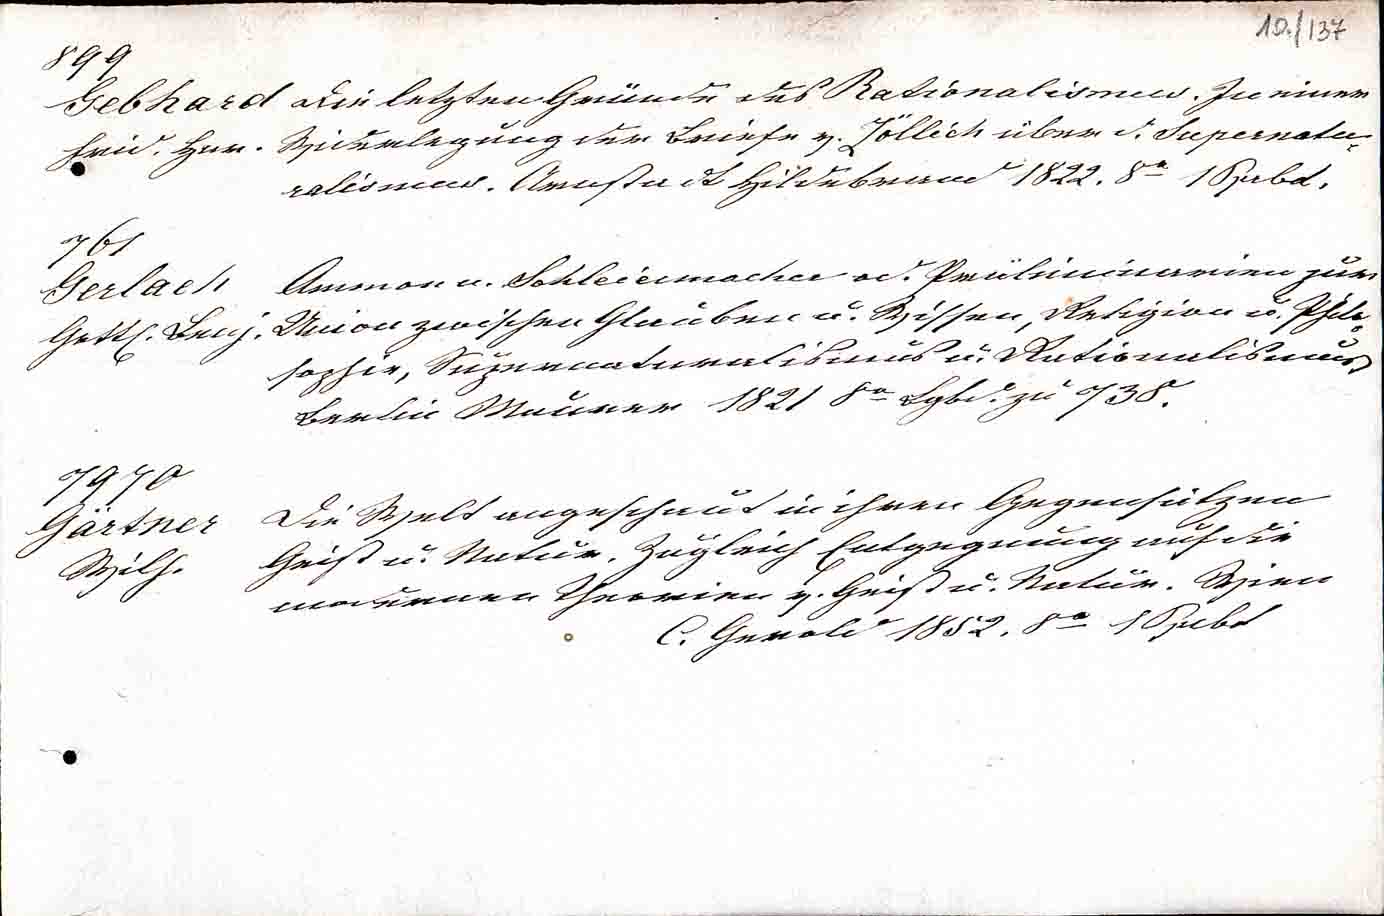 10./137
899
Gebhard Die letzten Gründe des Rationalismus. In einer
Frid. Her. Widerlegung der Briefe v. Zöllich über d. Supernatu-
ralismus. Arnstadt Hildebrand 1822. 8° 1 Ppbd.
761
Gerlach Ammon u. Schleiermacher od. Präliminarien zur
Gottl. Benj. Union zwischen Glauben u. Wissen, Religion u. Philo-
sophie, Supernaturalismus u. Rationalismus
Berlin Maurer 1821 8° Lgbd. zu 738.
7970
Gärtner Die Welt angeschaut in ihren Gegensätzen
Wilh. Geist u. Natur. Zugleich Entgegnung auf die
modernen Theorien v. Geist u. Natur. Wien
C. Gerold 1852. 8° 1 Ppbd